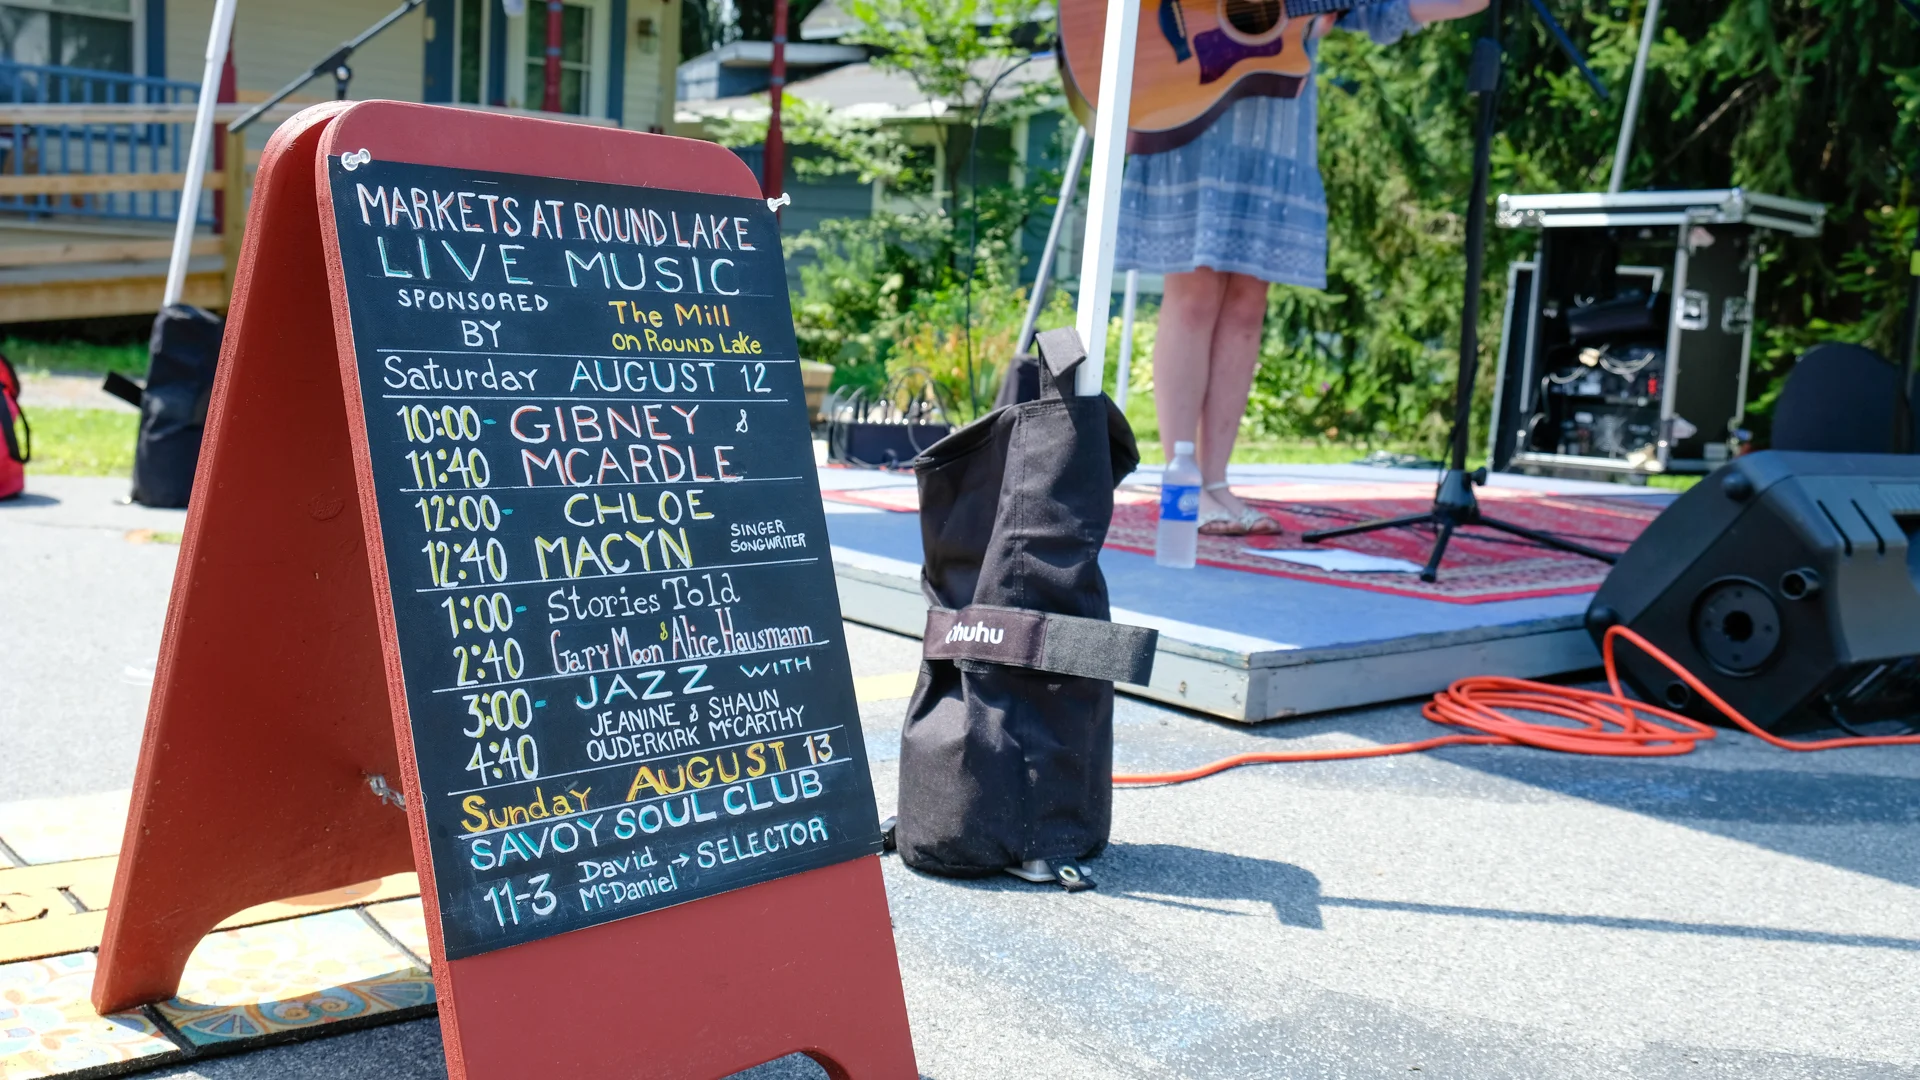 MARKETS AT ROUND LAKE
LIVE MUSIC
SPONSORED BY
The Mill
on Round Lake
Saturday AUGUST 12
10:00-
11:40
GIBNEY &
MCARDLE
12:00-
12:40
CHLOE
MACYN
SINGER
SONGWRITER
1:00-
2:40
Stories Told
Gary Moon & Alice Hausmann
3:00-
4:40
JAZZ WITH
JEANINE & SHAUN
OUDERKIRK McCARTHY
Sunday AUGUST 13
SAVOY SOUL CLUB
11-3
David
McDaniel → SELECTOR
Ohuhu